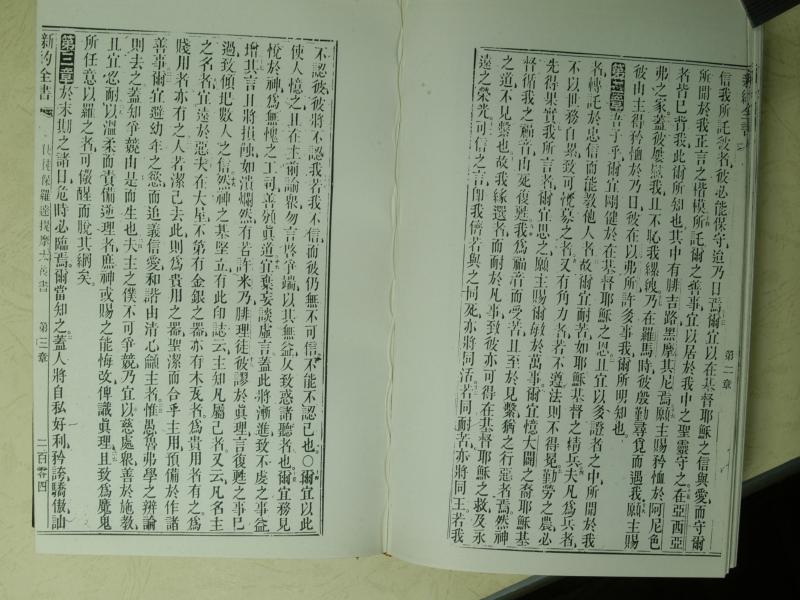 新約全書
第二章
信我所託彼者、彼必能保守、迨乃日焉、爾宜以在基督耶穌之信與愛、而守爾
所聞於我正言之楷模、所託爾之善事、宜以居於我中之聖靈守之、在亞西亞
者皆已背我、此爾所知也、其中有腓吉路黑摩其尼焉、願主賜矜恤於阿尼色
弗之家、蓋彼屢慰我、且不恥我縲絏、乃在羅馬時、彼殷勤尋覓而遇我、願主賜
彼由主得矜恤於乃日、彼在以弗所許多事我、爾所明知也、
第二章 吾子乎、爾宜剛健於在基督耶穌之恩、且宜以多證者之中、所聞於我
者、轉託於忠信而能教他人者、故爾宜耐苦、如耶穌基督之精兵、夫凡爲兵者、
不以世務自累、致可悅募之者、又有角力者、若不遵法、則不得冕、勤勞之農、必
先得果實、我所言者、爾宜思之、願主賜爾敏於萬事、爾宜憶大闢之裔耶穌基
督、循我之福音、由死復甦、我爲福音而受苦、且至於見繫、猶之行惡者焉、然神
之道不見繫也、故我緣選者、而耐於凡事、致彼亦可得在基督耶穌之救、及永
遠之榮光、可信之言、卽我儕若與之同死、亦將同活、若同耐苦、亦將同王、若我
不認彼、彼將不認我、若我不信、而彼仍無不可信、不能不認己也、〇爾宜以此
使人憶之、且在主前諭衆、勿言啓爭端、以其無益、乃致惑諸聽者也、爾宜務見
悅於神、爲無慙之工、司善頒眞道、宜棄妄談虛言、蓋此將漸進致不虔之事益
增、其言且將損蝕、如潰爛然、有若許米乃腓理徒、彼謬於眞理、言復甦之事已
過、致傾圮數人之信、然神之基堅立、有此印誌云、主知凡屬己者、又云、凡名主
之名者、宜遠於惡、夫在大室、不第有金銀之器、亦有木瓦者、爲貴用者有之、爲
賤用者亦有之、人若潔己去此、則爲貴用之器、聖潔而合乎主用、預備於作諸
善事、爾宜避幼年之慾、而追義信愛和、諧由淸心籲主者、惟愚魯弗學之辯論
則去之、蓋知爭競由是而生也、夫主之僕、不可爭競、乃宜以慈處衆、善於施敎、
且宜忍耐、以溫柔而責備逆理者、庶神或賜之能悔改、俾識眞理、且致爲魔鬼
所任意以羅之者、可儆醒而脫其網矣、
第三章 於末期之諸日、危時必臨焉、爾當知之、蓋人將自私好利、矜誇驕傲、訕
新約全書
使徒保羅達提摩太後書
第三章
二百零四